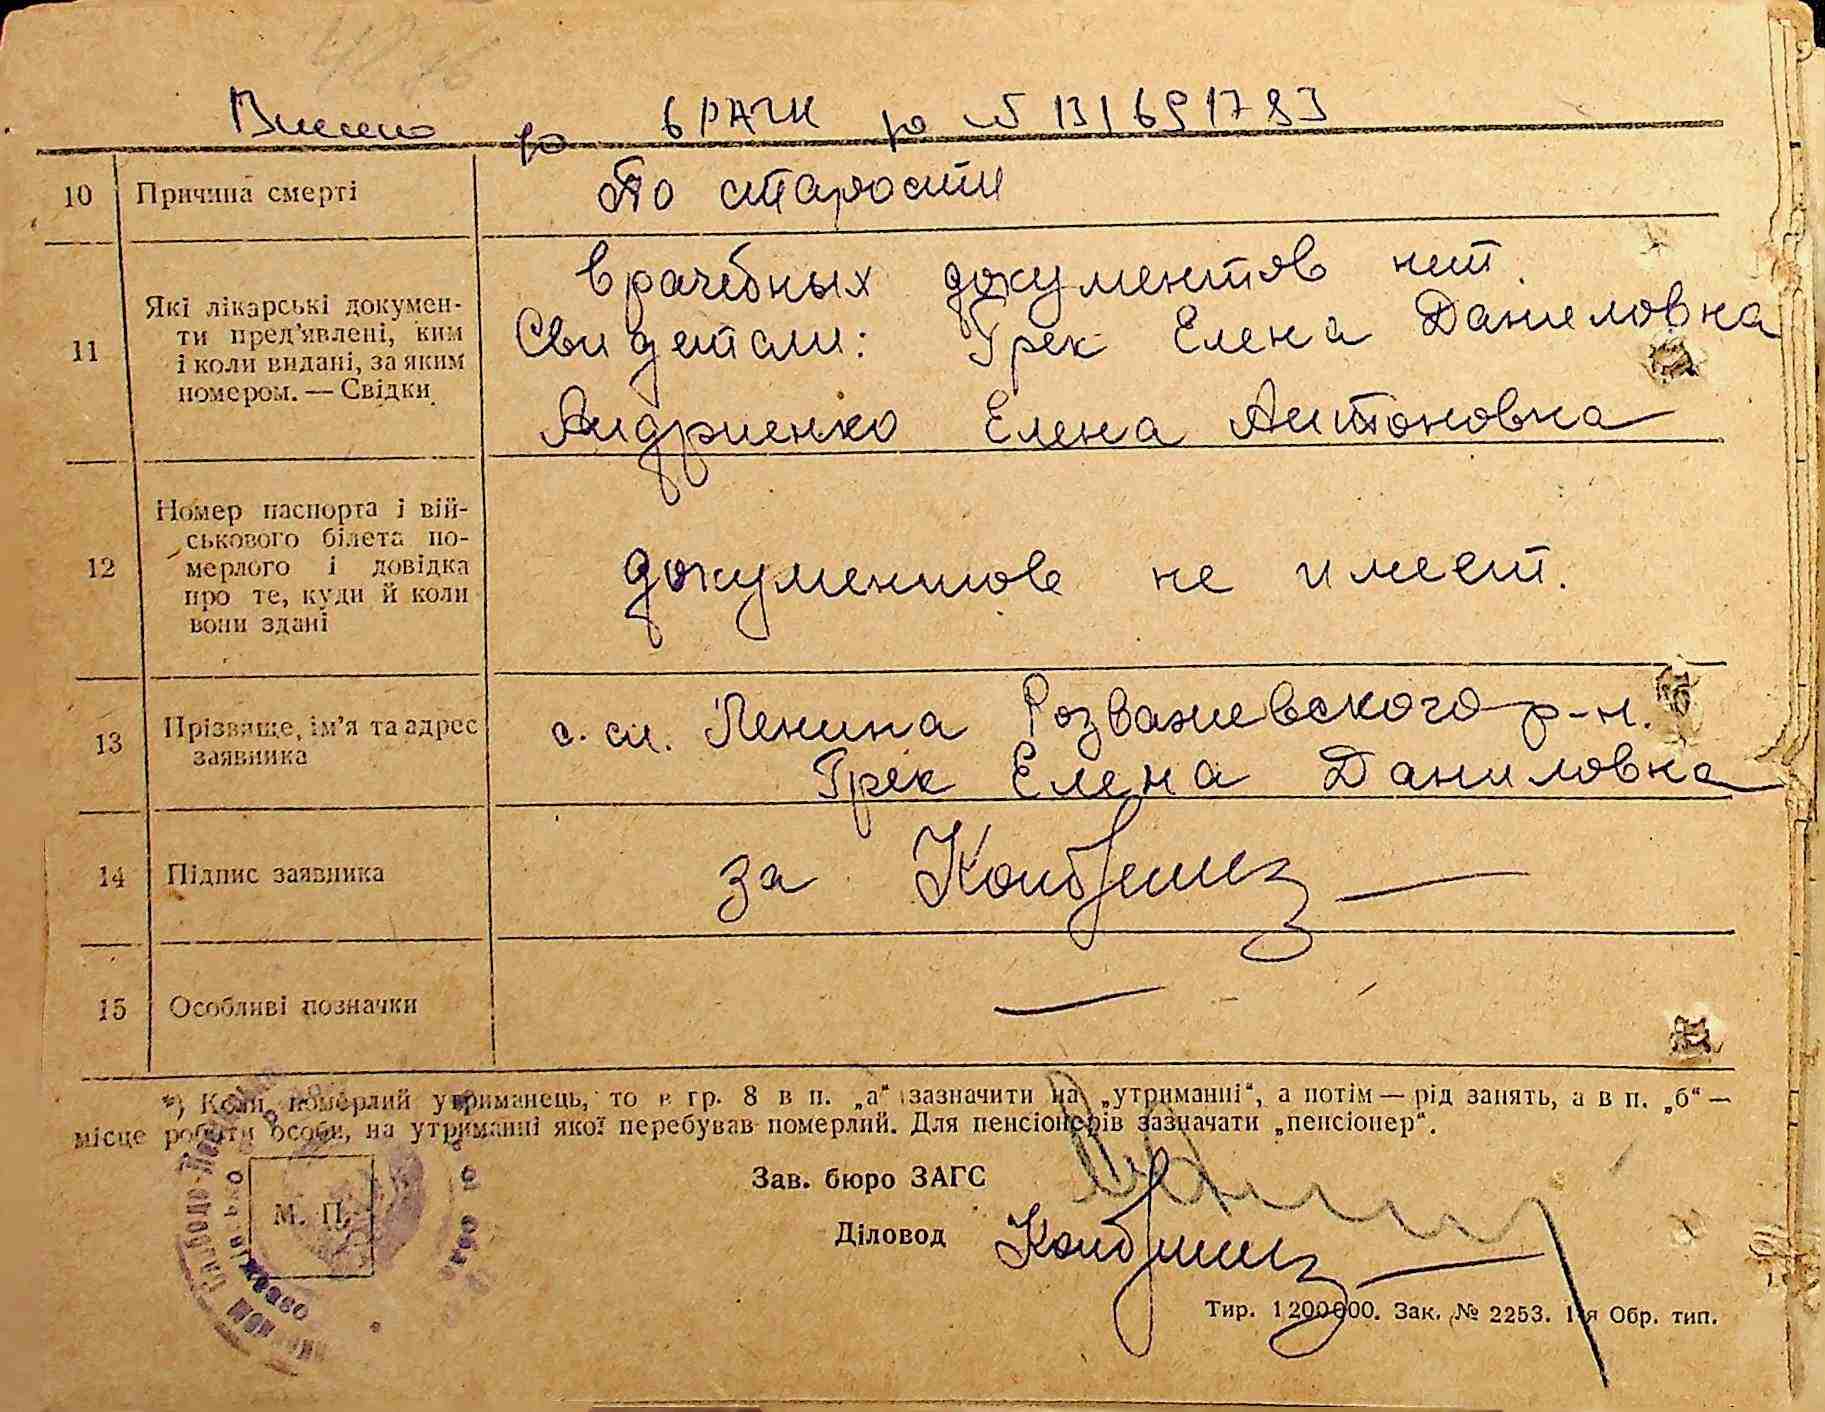 по № 131691783
10 Причина смерті По старости
11 Які лікарські докумен-
ти пред'явлені, ким
і коли видані, за яким
номером. — Свідки
врачебных документов нет.
Свидетели: Грек Елена Даниловна
Андриенко Елена Антоновна
12 Номер паспорта і вій-
ськового білета по-
мерлого і довідка
про те, куди й коли
вони здані
документов не имеет.
13 Прізвище, ім'я та адрес
заявника
с. сл. Ленина Розважевского р-н.
Грек Елена Даниловна
14 Підпис заявника за
15 Особливі позначки —
*) Коли померлий утриманець, то в гр. 8 в п. „а“ зазначити на „утриманні“, а потім — рід занять, а в п. „б“ —
місце роботи особи, на утриманні якої перебував померлий. Для пенсіонерів зазначати „пенсіонер“.
М. П.
Зав. бюро ЗАГС
Діловод
Тир. 1200000. Зак. № 2253. 1-я Обр. тип.